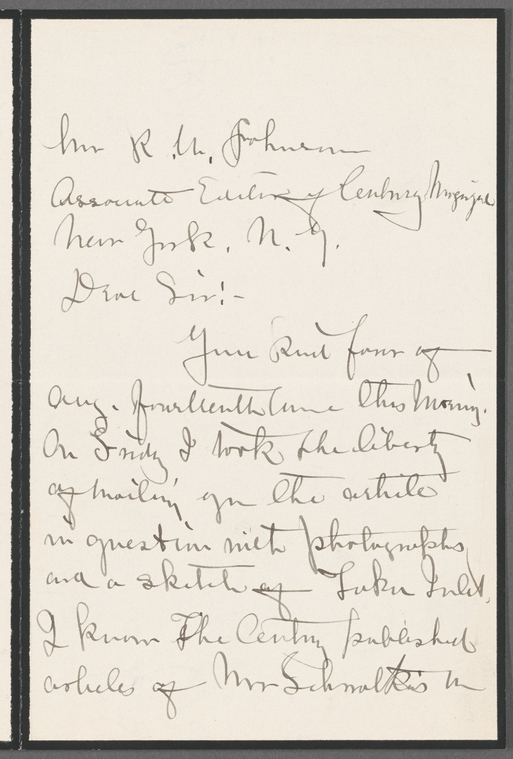 Mr R. U. Johnson
Associate Editor of Century Magazine
New York, N. Y.
Dear Sir:-
Your kind favor of
Aug. fourteenth came this morning.
On Friday I took the liberty
of mailing you the article
in question with photographs
and a sketch of Taku Inlet.
I know The Century published
articles of Mr Schwatka's in